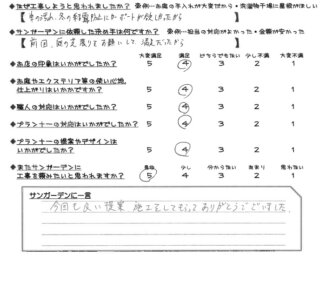 ◆なぜ工事しようと思われましたか? 条例…お庭の手入れが大変だから・洗濯物干場に屋根がほしい
【車の汚れ、冬の 防止にカーポートが欲しかったから】
◆サンガーデンに依頼した決め手は何ですか? 条例…担当の対応がよかった・金額が安かった
【前回、庭の 以てお願いして 満足だったから】
大変満足 満足 どちらでもない 少し不満 大変不満
◆お店の印象はいかがでしたか? 5 4 3 2 1
◆お庭やエクステリア等の使い心地、
仕上がりはいかがですか? 5 4 3 2 1
◆職人の対応はいかがでしたか? 5 4 3 2 1
◆プランナーの対応はいかがでしたか? 5 4 3 2 1
◆プランナーの提案やデザインは
いかがでしたか? 5 4 3 2 1
◆またサンガーデンに 是非 少し 分からない あまり 思わない
工事を頼みたいと思われますか? 5 4 3 2 1
サンガーデンに一言
今回も良い提案 施工をしてもらってありがとうございました。